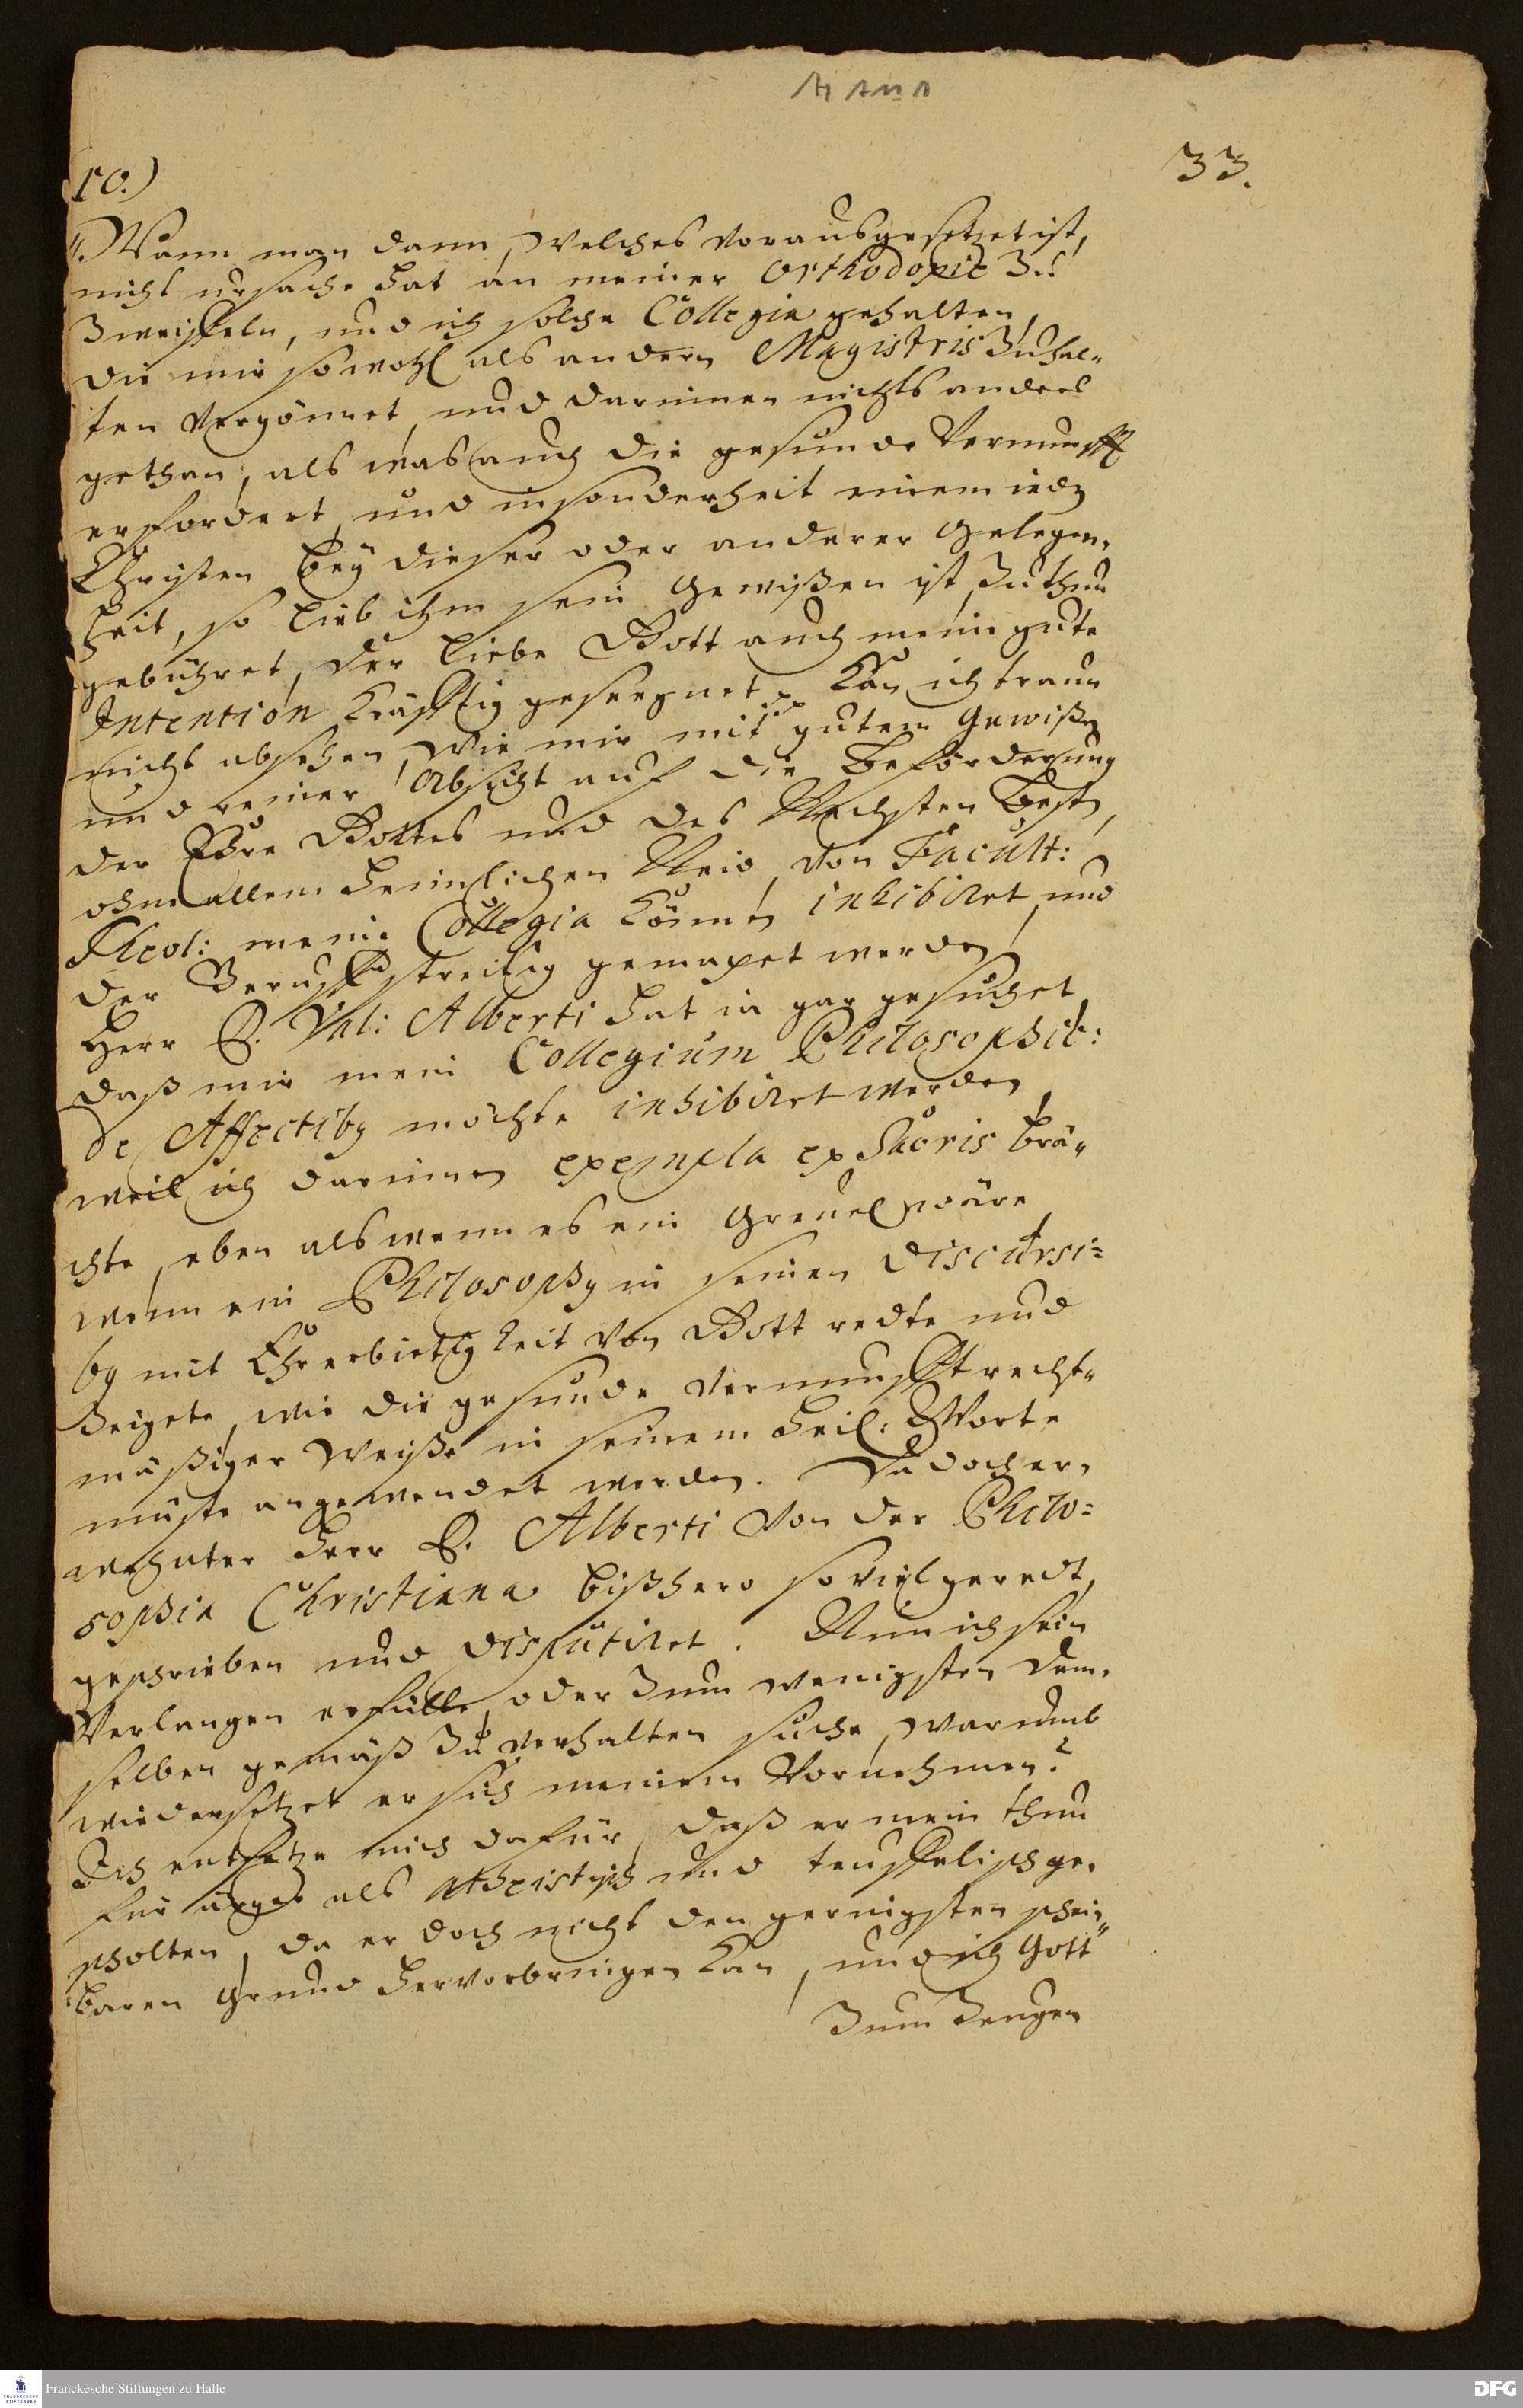 33.
10.)
"Wann man dann, welches vorausgesetzet ist,
nicht ursache hat an meiner Orthodoxie zu
zweiffeln, und ich solche Collegia gehalten,
die mir sowohl als andern Magistris zuhal-
ten vergönnet, und darinnen nichts anders
gethan, als was auch die gesunde Vernunfft
erfordert, und insonderheit einem iedn
Christen bey dieser oder anderer Gelegen-
heit, so lieb ihm sein Gewißen ist, zuthun
gebühret, der liebe Gott auch meine gute
Intention kräfftig geseegnet, kan ich traun
nicht absehen, wie mir mit gutem Gewißen
und reiner Absicht auf die Beförderung
der Ehre Gottes und des Nechsten best,
ohne allem heimlichen Neid, von Facult:
Theol: meine Collegia können inhibiret, und
der Beruff streitig gemachet werden,
Herr D. Val: Alberti hat ia gar gesuchet,
daß mir mein Collegium Philosophic:
de Affectibg möchte inhibiret werden,
weil ich darinnen exempla ex Sacris brä-
chte, eben als wenn es ein Greuel wäre,
wenn ein Philosophg in seinen Discursi-
bg mit Ehrerbietigkeit von Gott redte und
zeigete, wie die gesunde Vernunfft recht-
mäßiger Weiße in seinem heil: Worte
müste angewendet werden. Da doch er-
wehnter Herr D. Alberti von der Philo-
sophia Christiana bißhero so viel geredt,
geschrieben und disputiret. Nun ich sein
Verlangen erfülle, oder zum wenigsten dem-
selben gemäß zu verhalten suche, warumb
wiedersetzet er sich meinem Vornehmen?
Ich entsetze mich dafür, daß er mein thun
für ärger als Atheistisch und teuffelisch ge-
scholten, da er doch nicht den geringsten schein-
baren Grund hervorbringen kan, und ich Gott
zum Zeugen
Franckesche Stiftungen zu Halle
FRANCKESCHE STIFTUNGEN
DFG